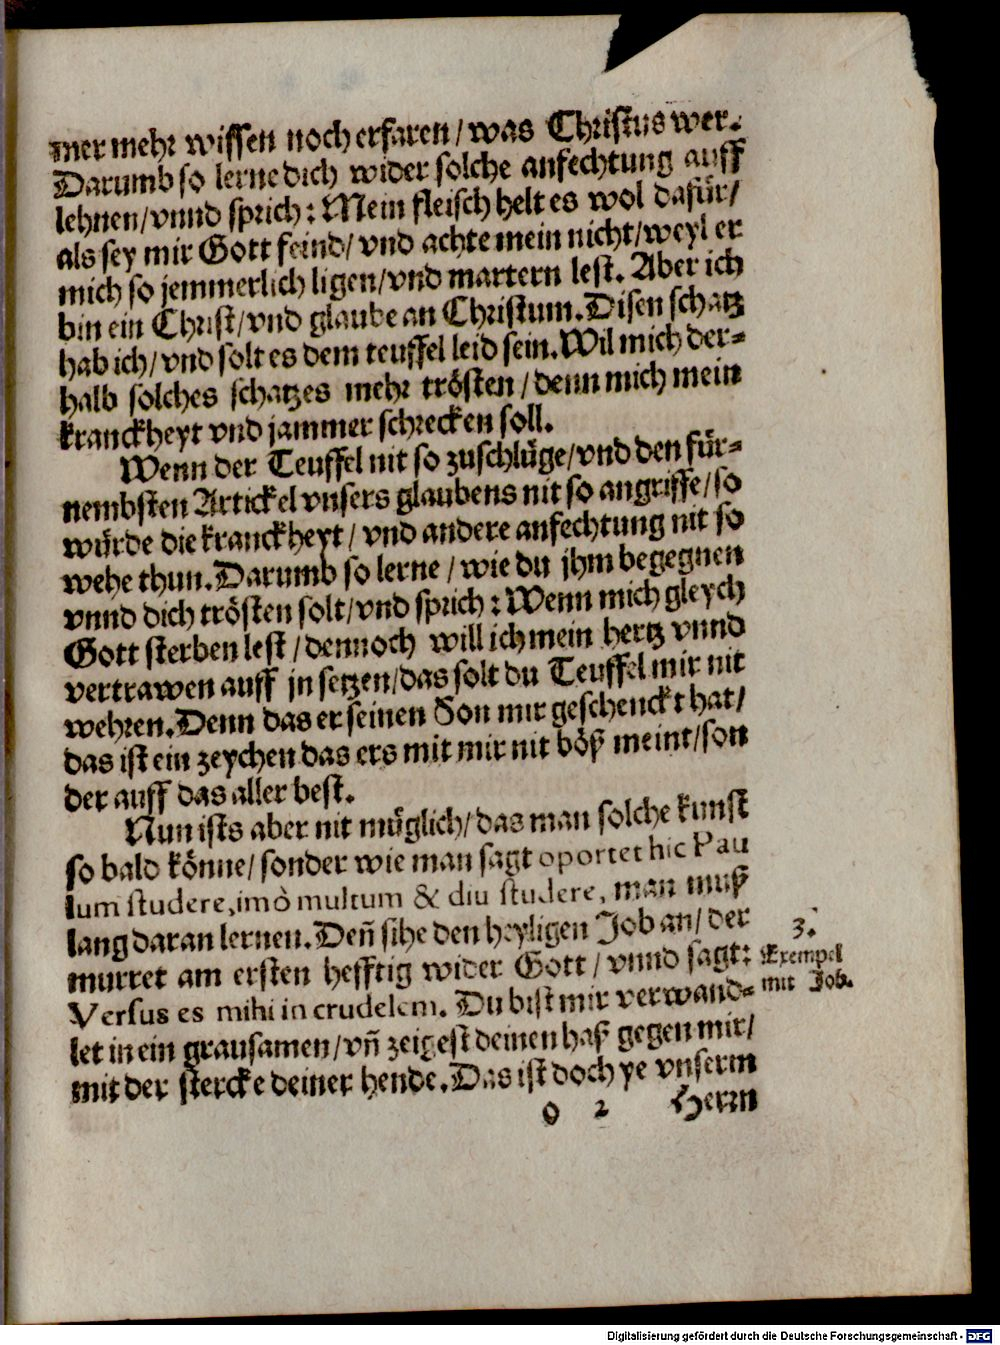 mer mehr wissen noch erfaren / was Christus wer.
Darumb so lerne dich wider solche anfechtung auff
lehnen / vnnd sprich : Mein fleisch helt es wol dafür /
als sey mir Gott feind / vnd achte mein nicht / weyl er
mich so jemmerlich ligen / vnd martern lest. Aber ich
bin ein Christ / vnd glaube an Christum. Disen schatz
hab ich / vnd solt es dem teuffel leid sein. Wil mich der=
halb solches schatzes mehr trösten / denn mich mein
kranckheyt vnd jammer schrecken soll.
Wenn der Teuffel nit so zuschlüge / vnd den für=
nembsten Artickel vnsers glaubens nit so angriffe / so
würde die kranckheyt / vnd andere anfechtung nit so
wehe thun. Darumb so lerne / wie du jhm begegnen
vnnd dich trösten solt / vnd sprich : Wenn mich gleych
Gott sterben lest / dennoch will ich mein hertz vnnd
vertrawen auff jn setzen / das solt du Teuffel mir nit
wehren. Denn das er seinen Son mir geschenckt hat /
das ist ein zeychen das ers mit mir nit böß meint / son
der auff das aller best.
Nun ists aber nit müglich / das man solche kunst
so bald könne / sonder wie man sagt oportet hic Pau
lum studere, imò multum & diu studere, man muß
lang daran lernen. Deñ sihe den heyligen Job an / der
murret am ersten hefftig wider Gott / vnnd sagt :
Versus es mihi in crudelem. Du bist mir verwand=
let in ein grausamen / vñ zeigest deinen haß gegen mir /
mit der stercke deiner hende. Das ist doch ye vnserm
o 2 Herrn
3.
Exempel
mit Job.
Digitalisierung gefördert durch die Deutsche Forschungsgemeinschaft - DFG